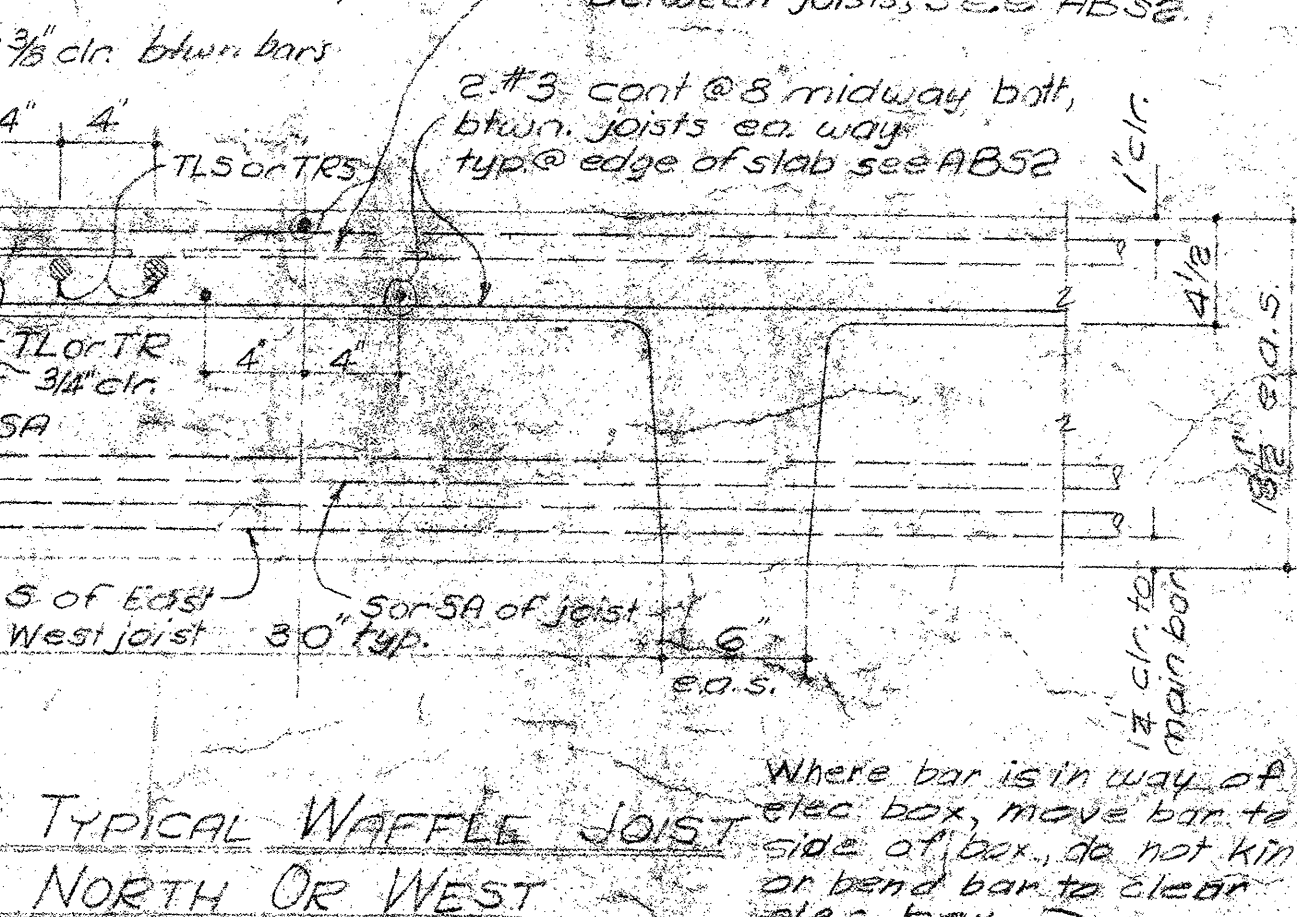 between joists, see ABS2.
3/8" clr. btwn bars
2-#3 cont @ 8" midway bott,
btwn. joists ea. way
typ. @ edge of slab see ABS2
4" 4"
TLS or TRS
1" clr.
4 1/2
e.a.s.
TL or TR
3/4" clr.
4" 4"
SA
2
2
S of East
West joist
S or SA of joist
30" typ.
6"
e.a.s.
1 1/4 clr. to
main bar
TYPICAL WAFFLE JOIST
NORTH OR WEST
Where bar is in way of
elec box, move bar to
side of box, do not kin
or bend bar to clear
elec box